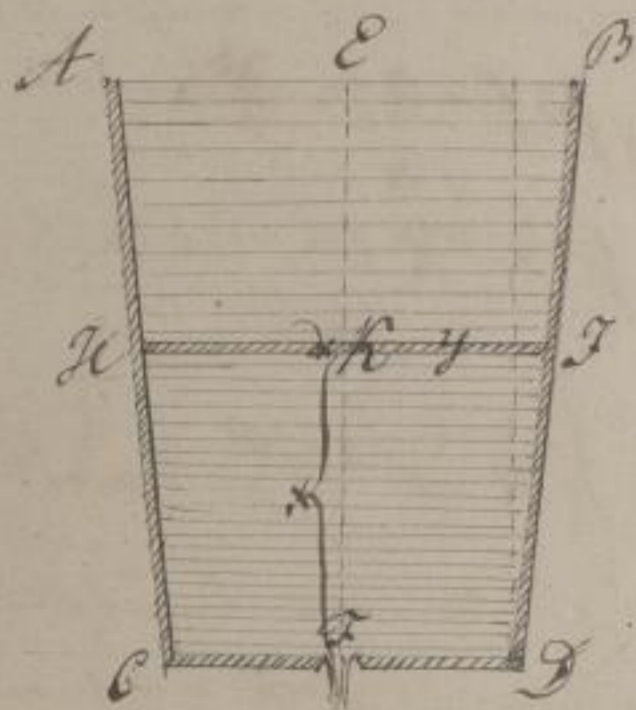 A E B
H K y I
x
F
C D